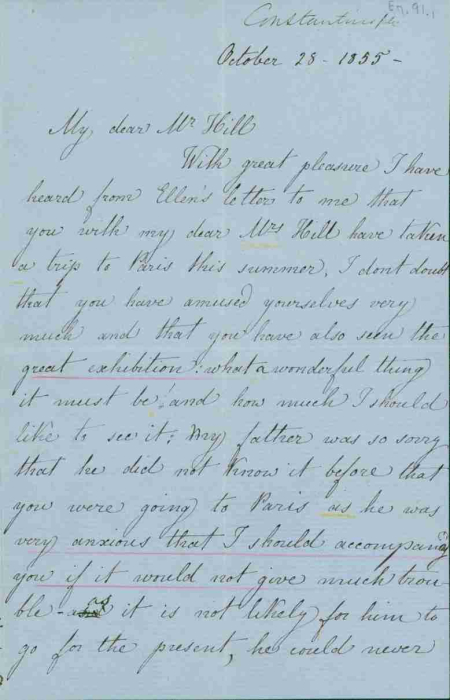 En. 91.1
Constantinople
October 28 - 1855 -
My dear Mr Hill
With great pleasure I have
heard from Ellen's letter to me that
you with my dear Mrs Hill have taken
a trip to Paris this summer. I don't doubt
that you have amused yourselves very
much and that you have also seen the
great exhibition: what a wonderful thing
it must be! and how much I should
like to see it; My father was so sorry
that he did not know it before that
you were going to Paris as he was
very anxious that I should accompany
you if it would not give much trou
ble - as it is not likely for him to
go for the present, he could never